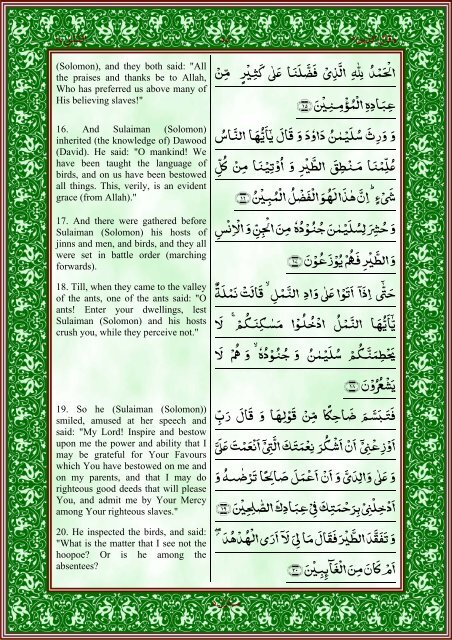 (Solomon), and they both said: "All
the praises and thanks be to Allah,
Who has preferred us above many of
His believing slaves!"
16. And Sulaiman (Solomon)
inherited (the knowledge of) Dawood
(David). He said: "O mankind! We
have been taught the language of
birds, and on us have been bestowed
all things. This, verily, is an evident
grace (from Allah)."
17. And there were gathered before
Sulaiman (Solomon) his hosts of
jinns and men, and birds, and they all
were set in battle order (marching
forwards).
18. Till, when they came to the valley
of the ants, one of the ants said: "O
ants! Enter your dwellings, lest
Sulaiman (Solomon) and his hosts
crush you, while they perceive not."
19. So he (Sulaiman (Solomon))
smiled, amused at her speech and
said: "My Lord! Inspire and bestow
upon me the power and ability that I
may be grateful for Your Favours
which You have bestowed on me and
on my parents, and that I may do
righteous good deeds that will please
You, and admit me by Your Mercy
among Your righteous slaves."
20. He inspected the birds, and said:
"What is the matter that I see not the
hoopoe? Or is he among the
absentees?
الْحَمْدُ لِلّٰهِ الَّذِیْ فَضَّلَنَا عَلٰی كَثِیْرٍ مِّنْ
عِبَادِهِ الْمُؤْمِنِیْنَ ﴿۱۵﴾
وَ وَرِثَ سُلَیْمٰنُ دَاوٗدَ وَ قَالَ یٰۤاَیُّهَا النَّاسُ
عُلِّمْنَا مَنْطِقَ الطَّیْرِ وَ اُوْتِیْنَا مِنْ كُلِّ
شَیْءٍ ؕ اِنَّ هٰذَا لَهُوَ الْفَضْلُ الْمُبِیْنُ ﴿۱۶﴾
وَ حُشِرَ لِسُلَیْمٰنَ جُنُوْدُهٗ مِنَ الْجِنِّ وَ الْاِنْسِ
وَ الطَّیْرِ فَهُمْ یُوْزَعُوْنَ ﴿۱۷﴾
حَتّٰۤی اِذَاۤ اَتَوْا عَلٰی وَادِ النَّمْلِ ۙ قَالَتْ نَمْلَةٌ
یّٰۤاَیُّهَا النَّمْلُ ادْخُلُوْا مَسٰكِنَكُمْ ۚ لَا
یَحْطِمَنَّكُمْ سُلَیْمٰنُ وَ جُنُوْدُهٗ ۙ وَ هُمْ لَا
یَشْعُرُوْنَ ﴿۱۸﴾
فَتَبَسَّمَ ضَاحِكًا مِّنْ قَوْلِهَا وَ قَالَ رَبِّ
اَوْزِعْنِیْۤ اَنْ اَشْكُرَ نِعْمَتَكَ الَّتِیْۤ اَنْعَمْتَ عَلَیَّ
وَ عَلٰی وَالِدَیَّ وَ اَنْ اَعْمَلَ صَالِحًا تَرْضٰىهُ وَ
اَدْخِلْنِیْ بِرَحْمَتِكَ فِیْ عِبَادِكَ الصّٰلِحِیْنَ ﴿۱۹﴾
وَ تَفَقَّدَ الطَّیْرَ فَقَالَ مَا لِیَ لَاۤ اَرَی الْهُدْهُدَ ۖ
اَمْ كَانَ مِنَ الْغَآىِٕبِیْنَ ﴿۲۰﴾